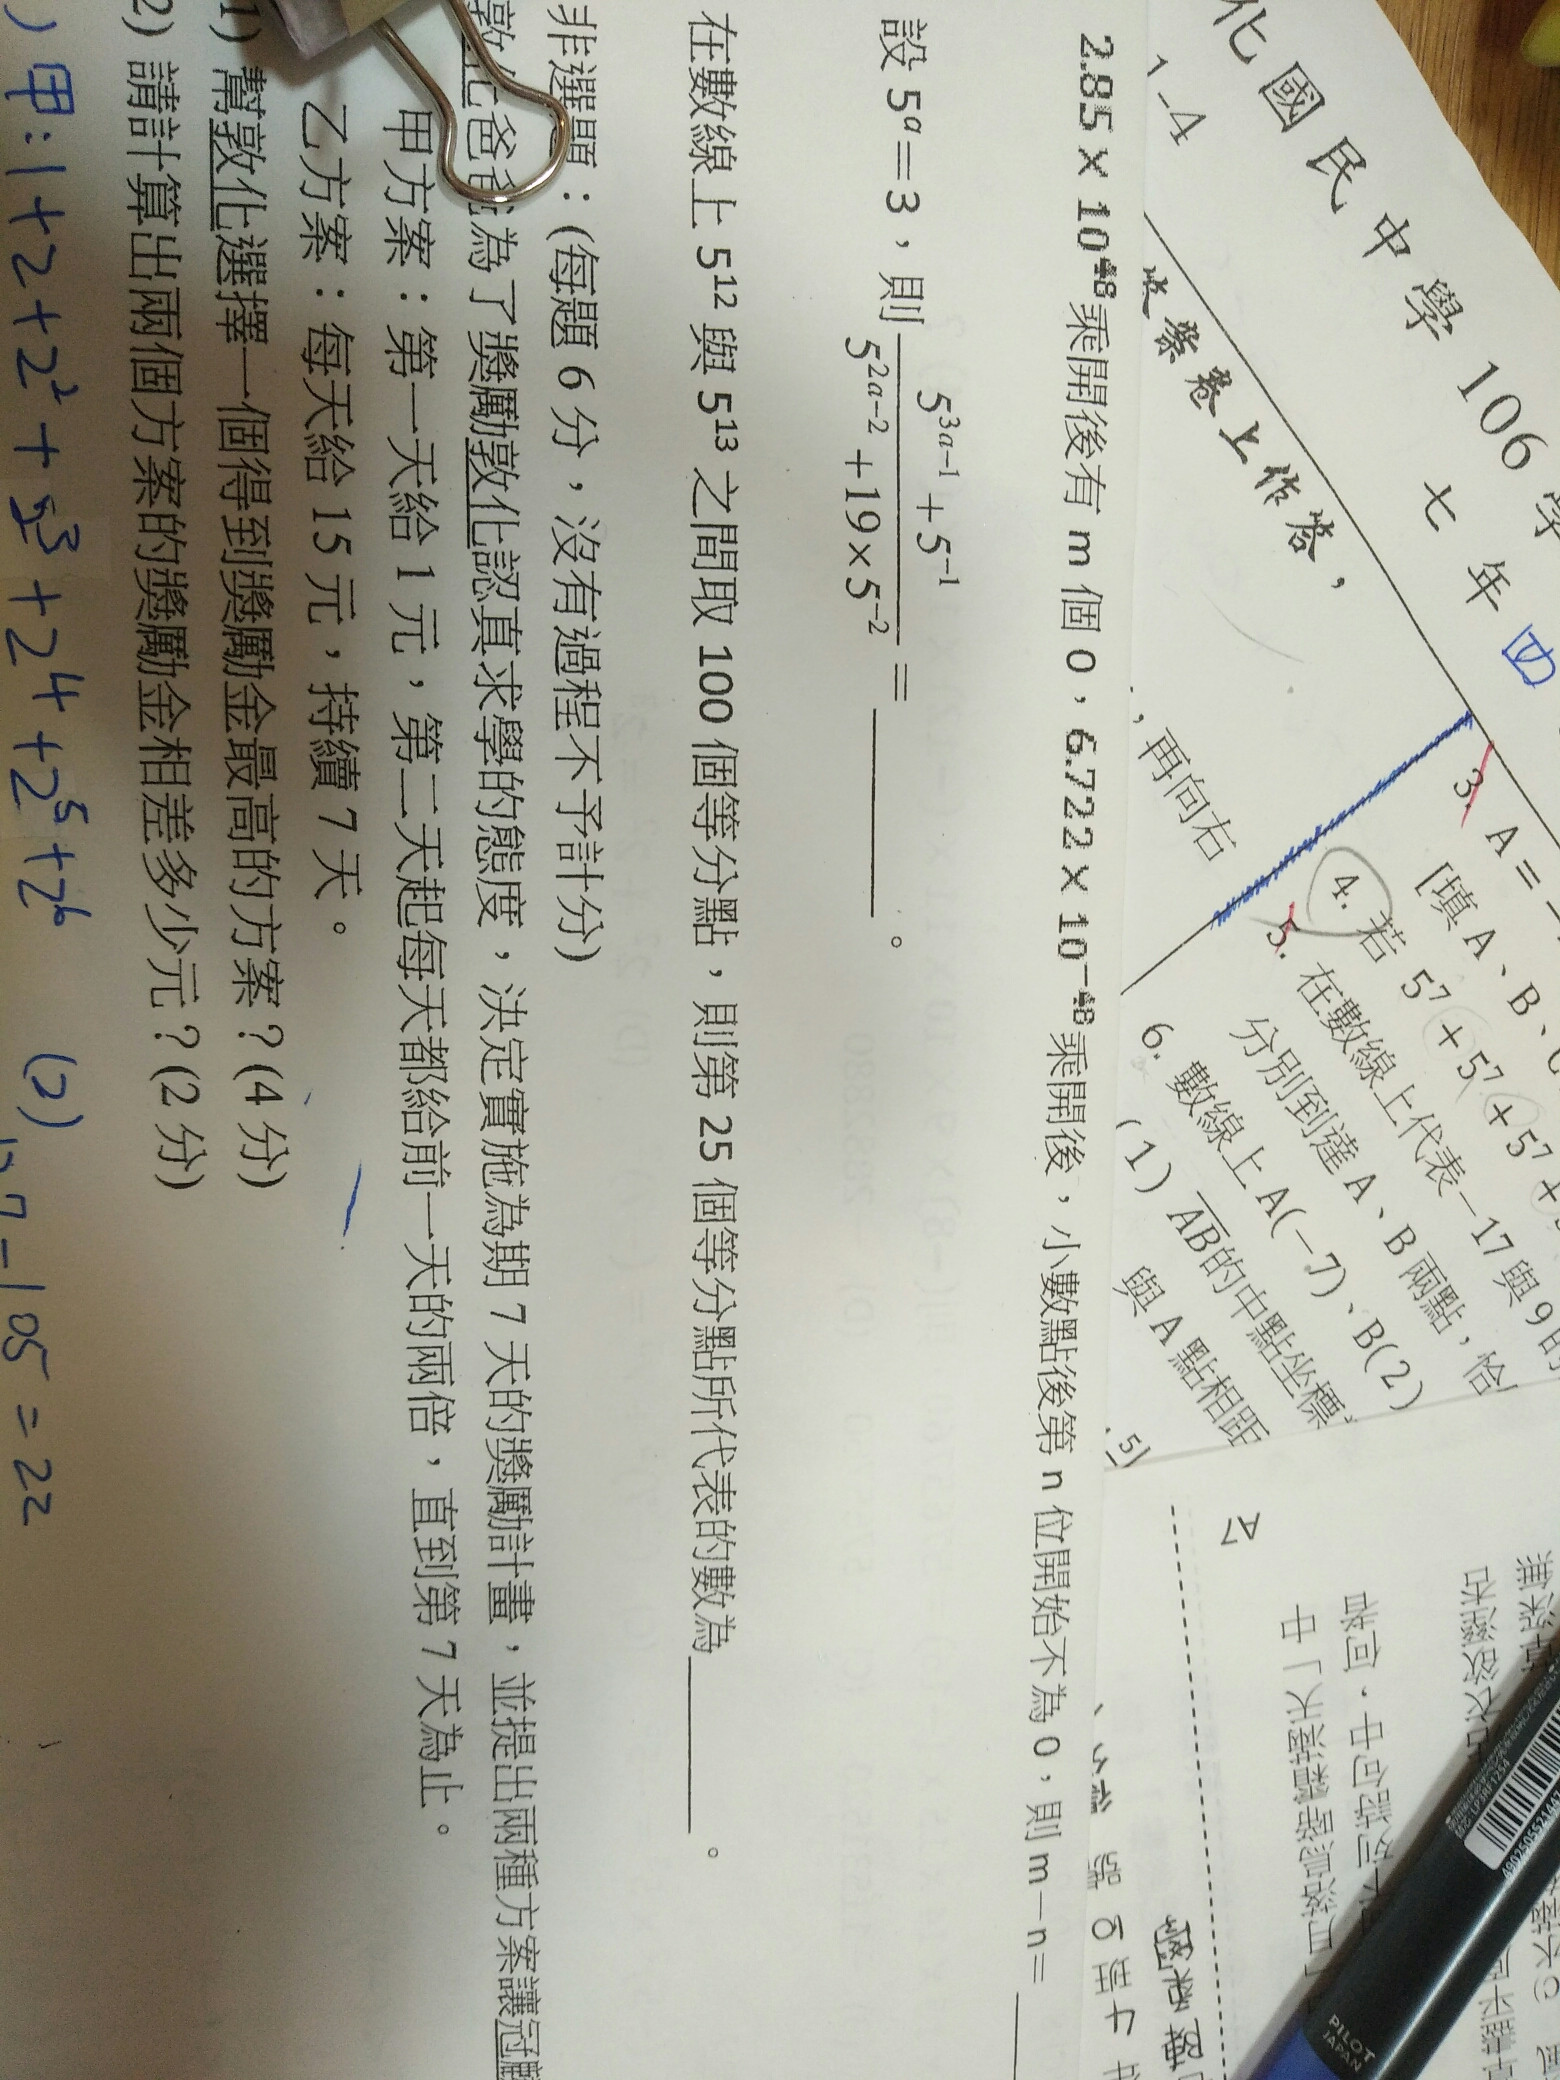 化國民中學 106 學
七年四
1-4
收祭卷上作答,
2.85 × 10⁴⁸乘開後有 m 個 0,6.722 × 10⁻⁴⁸乘開後,小數點後第 n 位開始不為 0,則 m－n=
設 5ᵃ=3,則 (5³ᵃ⁻¹ + 5⁻¹)/(5²ᵃ⁻² + 19×5⁻²) = ______。
在數線上 5¹² 與 5¹³ 之間取 100 個等分點,則第 25 個等分點所代表的數為______。
非選題:(每題 6 分,沒有過程不予計分)
敦化爸爸為了獎勵敦化認真求學的態度,決定實施為期 7 天的獎勵計畫,並提出兩種方案讓冠
甲方案:第一天給 1 元,第二天起每天都給前一天的兩倍,直到第 7 天為止。
乙方案:每天給 15 元,持續 7 天。
1) 幫敦化選擇一個得到獎勵金最高的方案?(4 分)
2) 請計算出兩個方案的獎勵金相差多少元?(2 分)
) 甲:1+2+2²+2³+2⁴+2⁵+2⁶ (2)
7-105=22
,再向右
3. A=
[填 A、B、
4. 若 5⁷ + 5⁷ + 5⁷ +
5. 在數線上代表－17 與 9 的
分別到達 A、B 兩點,恰
6. 數線上 A(－7)、B(2)
(1) AB的中點坐標
與 A 點相距
A7
PILOT
JAPAN